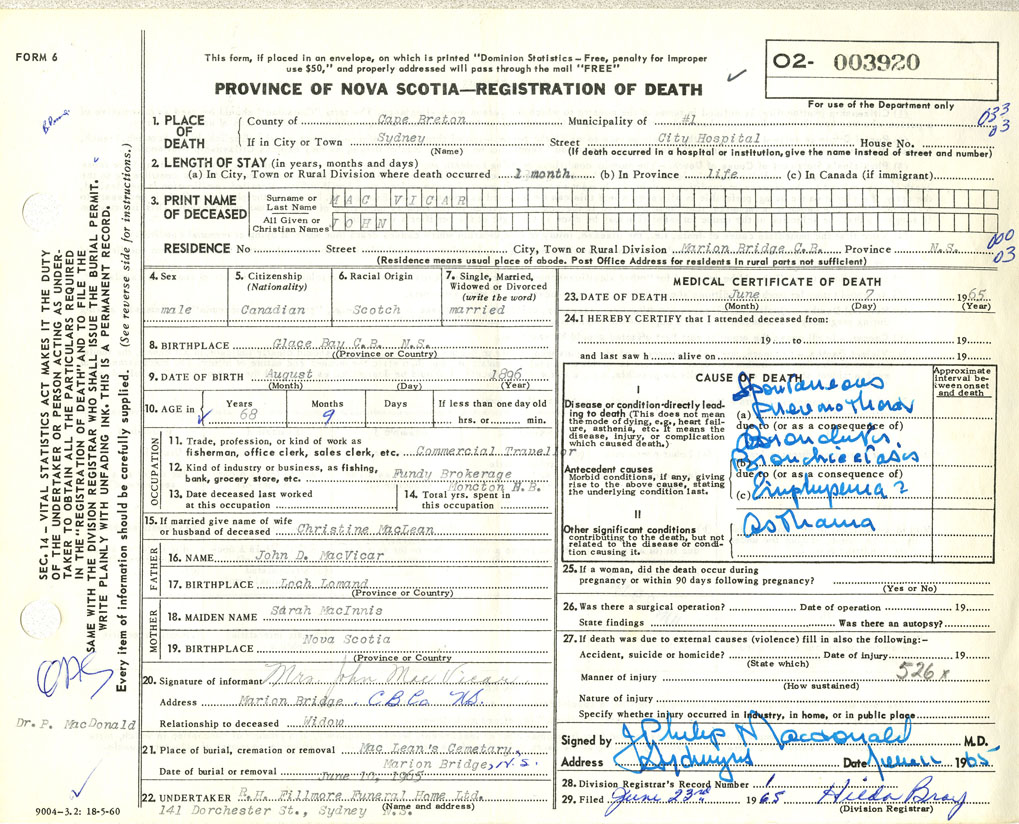 FORM 6
This form, if placed in an envelope, on which is printed "Dominion Statistics – Free, penalty for Improper
use $50," and properly addressed will pass through the mail "FREE"
PROVINCE OF NOVA SCOTIA—REGISTRATION OF DEATH
O2- 003920
For use of the Department only
033
03
1. PLACE OF DEATH
County of Cape Breton Municipality of #1
If in City or Town Sydney Street City Hospital House No.
(Name) (If death occurred in a hospital or institution, give the name instead of street and number)
2. LENGTH OF STAY (in years, months and days)
(a) In City, Town or Rural Division where death occurred 1 month. (b) In Province life (c) In Canada (if immigrant)
3. PRINT NAME OF DECEASED
Surname or Last Name MAC VICAR
All Given or Christian Names JOHN
RESIDENCE No Street City, Town or Rural Division Marion Bridge C.B. Province N.S.
(Residence means usual place of abode. Post Office Address for residents in rural parts not sufficient)
000
03
4. Sex
male
5. Citizenship
(Nationality)
Canadian
6. Racial Origin
Scotch
7. Single, Married,
Widowed or Divorced
(write the word)
married
8. BIRTHPLACE Glace Bay C.B. N.S.
(Province or Country)
9. DATE OF BIRTH August 1896
(Month) (Day) (Year)
10. AGE in Years Months Days If less than one day old
68 9 hrs. or min.
OCCUPATION
11. Trade, profession, or kind of work as
fisherman, office clerk, sales clerk, etc. Commercial Traveller
12. Kind of industry or business, as fishing,
bank, grocery store, etc. Fundy Brokerage
Moncton N.B.
13. Date deceased last worked
at this occupation
14. Total yrs. spent in
this occupation
15. If married give name of wife
or husband of deceased Christine MacLean
FATHER
16. NAME John D. MacVicar
17. BIRTHPLACE Loch Lomand
(Province or Country)
MOTHER
18. MAIDEN NAME Sarah MacInnis
19. BIRTHPLACE Nova Scotia
(Province or Country)
20. Signature of informant Mrs. John Mac Vicar
Address Marion Bridge C.B. Co. N.S.
Relationship to deceased Widow
21. Place of burial, cremation or removal Mac Lean's Cemetary,
Marion Bridge, N.S.
Date of burial or removal June 10, 1965
22. UNDERTAKER R.H. Fillmore Funeral Home Ltd.
(Name and address)
141 Dorchester St., Sydney N.S.
MEDICAL CERTIFICATE OF DEATH
23. DATE OF DEATH June 7 1965
(Month) (Day) (Year)
24. I HEREBY CERTIFY that I attended deceased from:
19 to 19
and last saw h alive on 19
CAUSE OF DEATH
Approximate
interval be-
tween onset
and death
I
Disease or condition directly lead-
ing to death (This does not mean
the mode of dying, e.g., heart fail-
ure, asthenia, etc. It means the
disease, injury, or complication
which caused death.)
Spontaneous
(a) pneumothorax
due to (or as a consequence of)
Antecedent causes
Morbid conditions, if any, giving
rise to the above cause, stating
the underlying condition last.
(b) Bronchiectasis
due to (or as a consequence of)
(c) Emphysema ?
II
Other significant conditions
contributing to the death, but not
related to the disease or condi-
tion causing it.
Asthama
25. If a woman, did the death occur during
pregnancy or within 90 days following pregnancy?
(Yes or No)
26. Was there a surgical operation? Date of operation 19
State findings Was there an autopsy?
27. If death was due to external causes (violence) fill in also the following:–
Accident, suicide or homicide? Date of injury 19
(State which)
Manner of injury 526 x
(How sustained)
Nature of injury
Specify whether injury occurred in industry, in home, or in public place
Signed by J Philip N Macdonald M.D.
Address Sydney NS Date 1965
28. Division Registrar's Record Number 1
29. Filed June 23rd 1965 Hilda Bray
(Division Registrar)
SEC. 14 – VITAL STATISTICS ACT MAKES IT THE DUTY
OF THE UNDERTAKER OR PERSON ACTING AS UNDER-
TAKER TO OBTAIN ALL THE PARTICULARS REQUIRED
IN THE "REGISTRATION OF DEATH" AND TO FILE THE
SAME WITH THE DIVISION REGISTRAR WHO SHALL ISSUE THE BURIAL PERMIT.
WRITE PLAINLY WITH UNFADING INK. THIS IS A PERMANENT RECORD.
Every item of information should be carefully supplied. (See reverse side for instructions.)
Dr. P. MacDonald
9004–3.2: 18-5-60